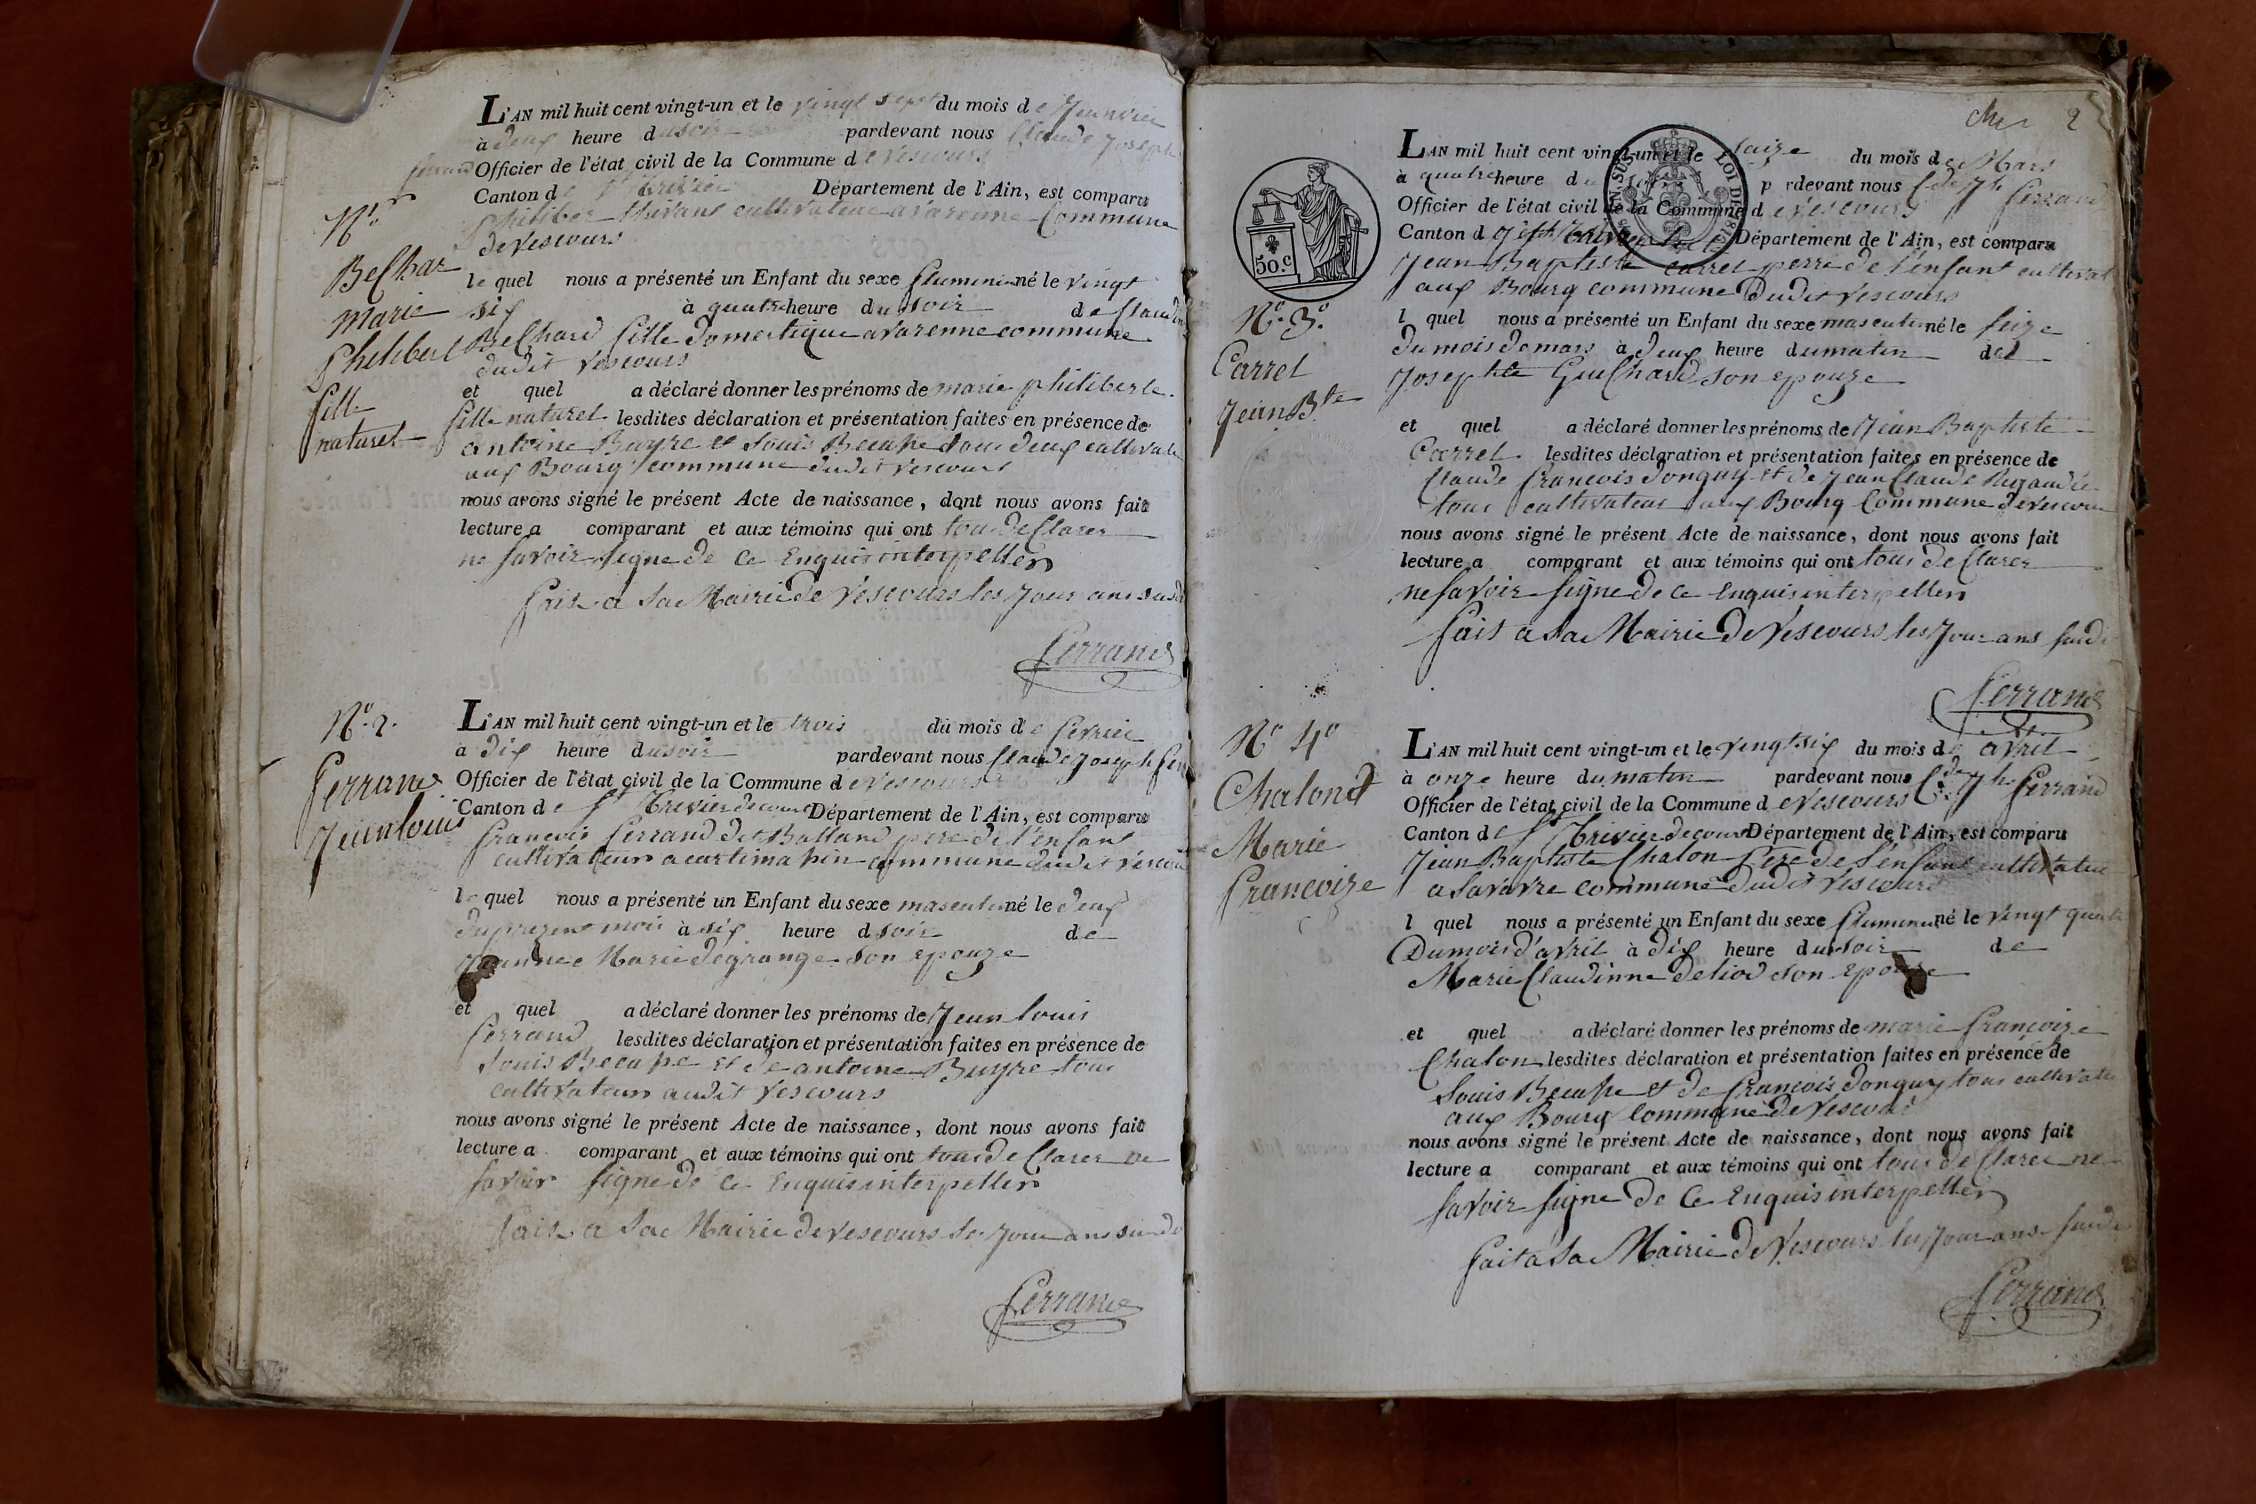 L'AN mil huit cent vingt-un et le vingt sept du mois de Jeanvier
à deux heure du soir pardevant nous Claude Joseph
ferrand Officier de l'état civil de la Commune de Vescours
Canton de St Trivier Département de l'Ain, est comparu
Philiber cultivateur a Varenne Commune
de Vescours
le quel nous a présenté un Enfant du sexe fluminin né le vingt
six à quatre heure du soir de Claudin
Belchard fille domestique a varenne commune
dudit Vescours
et quel a déclaré donner les prénoms de marie philiberte
fille naturel lesdites déclaration et présentation faites en présence de
antoine Buyre et Louis Beaupe tous deux cultivate
aux Bourg commune dudit vescours
nous avons signé le présent Acte de naissance, dont nous avons fait
lecture a comparant et aux témoins qui ont tous de Clarer
ne savoir signe de ce Enquis interpeller
fait a La Mairie de Vescours les Jour ans susd
ferrand
No
Belchar
Marie
Philibert
fille
naturel
No. 2.
ferrand
Jean louis
L'AN mil huit cent vingt-un et le trois du mois de fevrier
à dix heure du soir pardevant nous Claude Joseph fer
Officier de l'état civil de la Commune de Vescours
Canton de St Trivier de cour Département de l'Ain, est comparu
francois ferrand dit Balland pere de l'enfant
cultivateur a curtimapin commune dudit vescour
le quel nous a présenté un Enfant du sexe masculin né le deux
du prezent mois à six heure d soir de
Jeannee Marie degrange son epouze
et quel a déclaré donner les prénoms de Jean louis
ferrand lesdites déclaration et présentation faites en présence de
Louis Beaupe et de antoine Buyre tous
cultivateur audit vescours
nous avons signé le présent Acte de naissance, dont nous avons fait
lecture a comparant et aux témoins qui ont tous de Clarer ne
savoir signe de ce Enquis interpeller
fait a La Mairie de vescours les Jour ans susd
ferrand
2
50.c
LOI DE 1816
No. 3o
Carrel
Jean Bte
L'AN mil huit cent vingt-un et le saize du mois de Mars
à quatre heure du pardevant nous Cde Jh ferrand
Officier de l'état civil de la Commune de Vescours
Canton d Département de l'Ain, est comparu
Jean Baptiste carrel perre de l'enfant cultivat
aux Bourg commune dudit vescours
l quel nous a présenté un Enfant du sexe masculin né le seize
du mois de mars à deux heure du matin de
Josephte Guichard son epouze
et quel a déclaré donner les prénoms de Jean Baptiste
Carrel lesdites déclaration et présentation faites en présence de
Claude francois donguy et de Jean Claude
tous cultivateur aux Bourg Commune de vescour
nous avons signé le présent Acte de naissance, dont nous avons fait
lecture a comparant et aux témoins qui ont tous de Clarer
ne savoir signe de ce Enquis interpeller
fait a La Mairie de Vescours les Jour ans susd
ferrand
No 4o
Chalond
Marie
francoize
L'AN mil huit cent vingt-un et le vingt six du mois d avril
à onze heure du matin pardevant nous Cde Jh ferrand
Officier de l'état civil de la Commune de Vescours
Canton de St Trivier de cour Département de l'Ain, est comparu
Jean Baptiste Chalon Pere de l'enfant cultivateur
a Lavavre commune dudit vescours
l quel nous a présenté un Enfant du sexe fluminin né le vingt quatre
Dumois d'avril à dix heure du soir de
Marie Claudinne deliod son epouze
et quel a déclaré donner les prénoms de marie françoize
Chalon lesdites déclaration et présentation faites en présence de
Louis Beaupe et de francois donguy tous cultivate
aux Bourg Commune de Vescour
nous avons signé le présent Acte de naissance, dont nous avons fait
lecture a comparant et aux témoins qui ont tous de Clarer ne
savoir signe de ce Enquis interpeller
fait a La Mairie de Vescours les Jour ans susd
ferrand